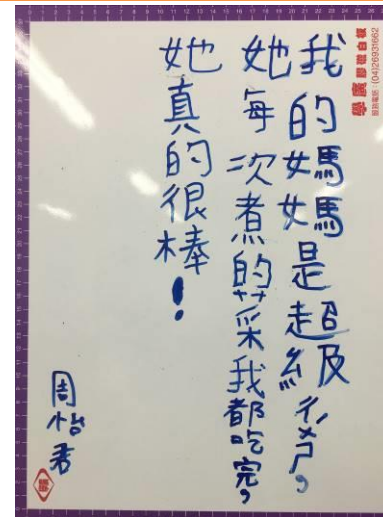 學廣膠磁白板
服務電話:(04)26931662
我的媽媽是超級ㄔㄨˊㄕ,
她每次煮的菜我都吃完,
她真的很棒!
周怡君